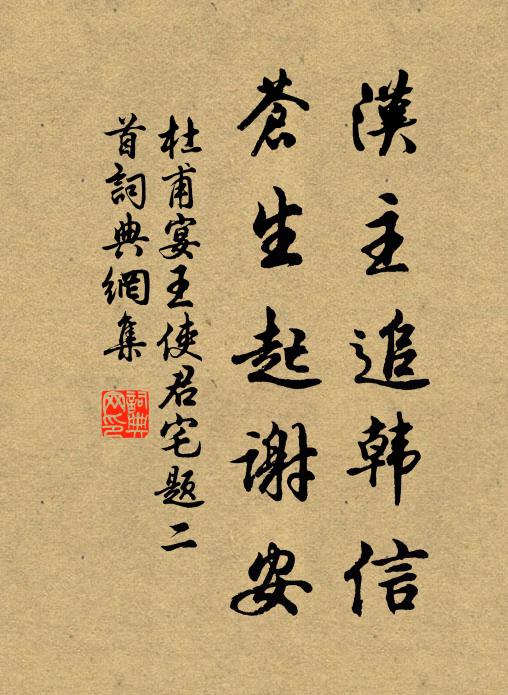 漢主追韩信
蒼生起謝安
杜甫宴王使君宅題二
首詞典網集
詞典
网印